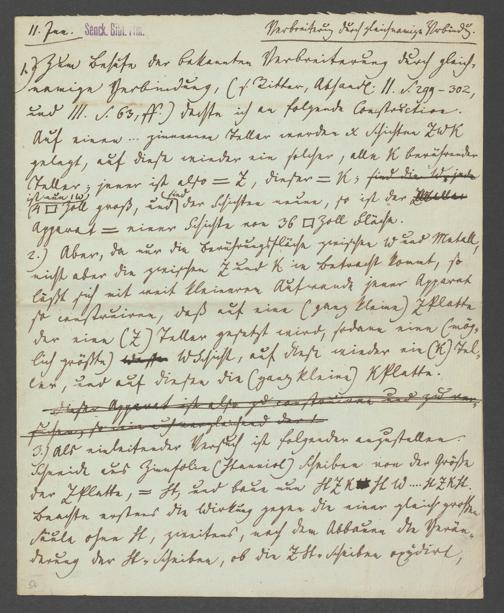 11. Jan. Senck. Bibl. Ffm. Verbreiterung durch gleichnamige Verbindg.
1.) Zum Behufe der bekannten Verbreiterung durch gleich-
namige Verbindung, (s. Ritter, Abhandl. II. S. 299–302,
und III. S. 63, ff.) dachte ich an folgende Construction.
Auf einen … zinnernen Teller werden x Schichten ZWK
gelegt, auf diese wieder ein solcher, alle K berührender
Teller; jener ist also = Z, dieser = K;
ist nun 1 W
4 □ Zoll groß, und sind der Schichten neun, so ist der
Apparat = einer Schichte von 36 □ Zoll Fläche.
2.) Aber, da nur die Berührungsfläche zwischen W und Metall,
nicht aber die zwischen Z und K in Betracht kommt, so
läßt sich mit weit kleinerem Aufwande jener Apparat
so construiren, daß auf eine (ganz kleine) Z Platte
der eine (Z) Teller gesetzt wird, sodann eine (mög-
lich größte) W Schicht, auf diese wieder ein (K) Tel-
ler, und auf diesen die (ganz kleine) K Platte.
Dieser Apparat ist also zu construiren und zu
3.) Als einleitender Versuch ist folgender anzustellen.
Schneide aus Zinnfolie (Stanniol) Scheiben von der Größe
der Z Platte, = St, und baue nun
Beachte erstens die Wirkung gegen die einer gleich großen
Säule ohne St, zweitens, nach dem Abbauen die Verän-
derung der St-Scheiben, ob die Z St-Scheiben oxydirt,